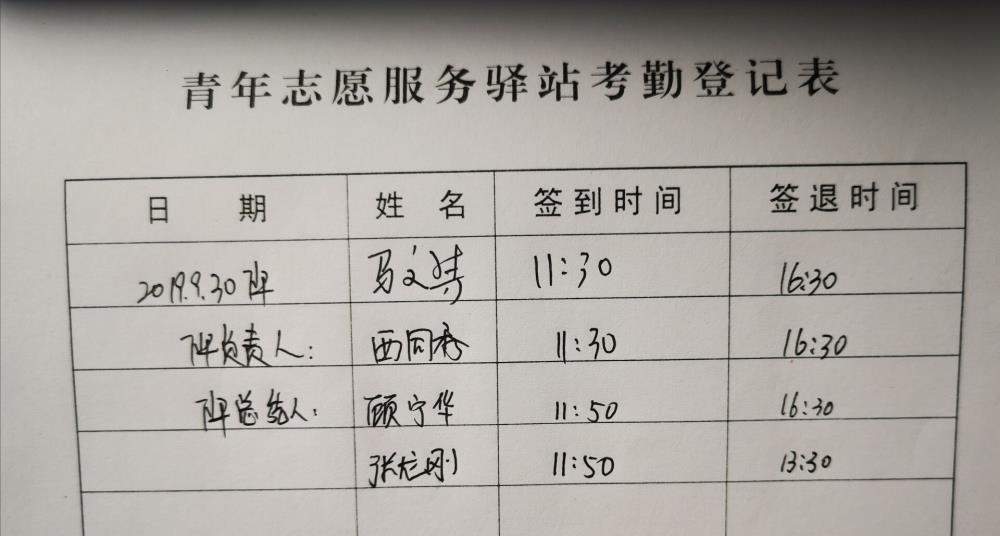 青年志愿服务驿站考勤登记表
日 期 姓 名 签到时间 签退时间
2019.9.30 班 马文涛 11:30 16:30
班负责人: 西同秀 11:30 16:30
班总结人: 顾宁华 11:50 16:30
张 刚 11:50 13:30